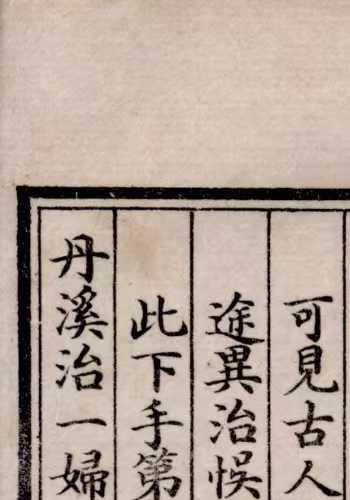 可見古人
途異治悮
此下手第
丹溪治一婦